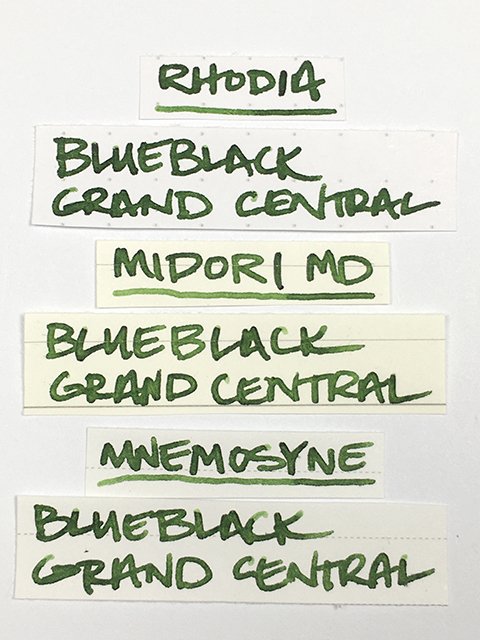 RHODIA
BLUEBLACK
GRAND CENTRAL
MIDORI MD
BLUEBLACK
GRAND CENTRAL
MNEMOSYNE
BLUEBLACK
GRAND CENTRAL